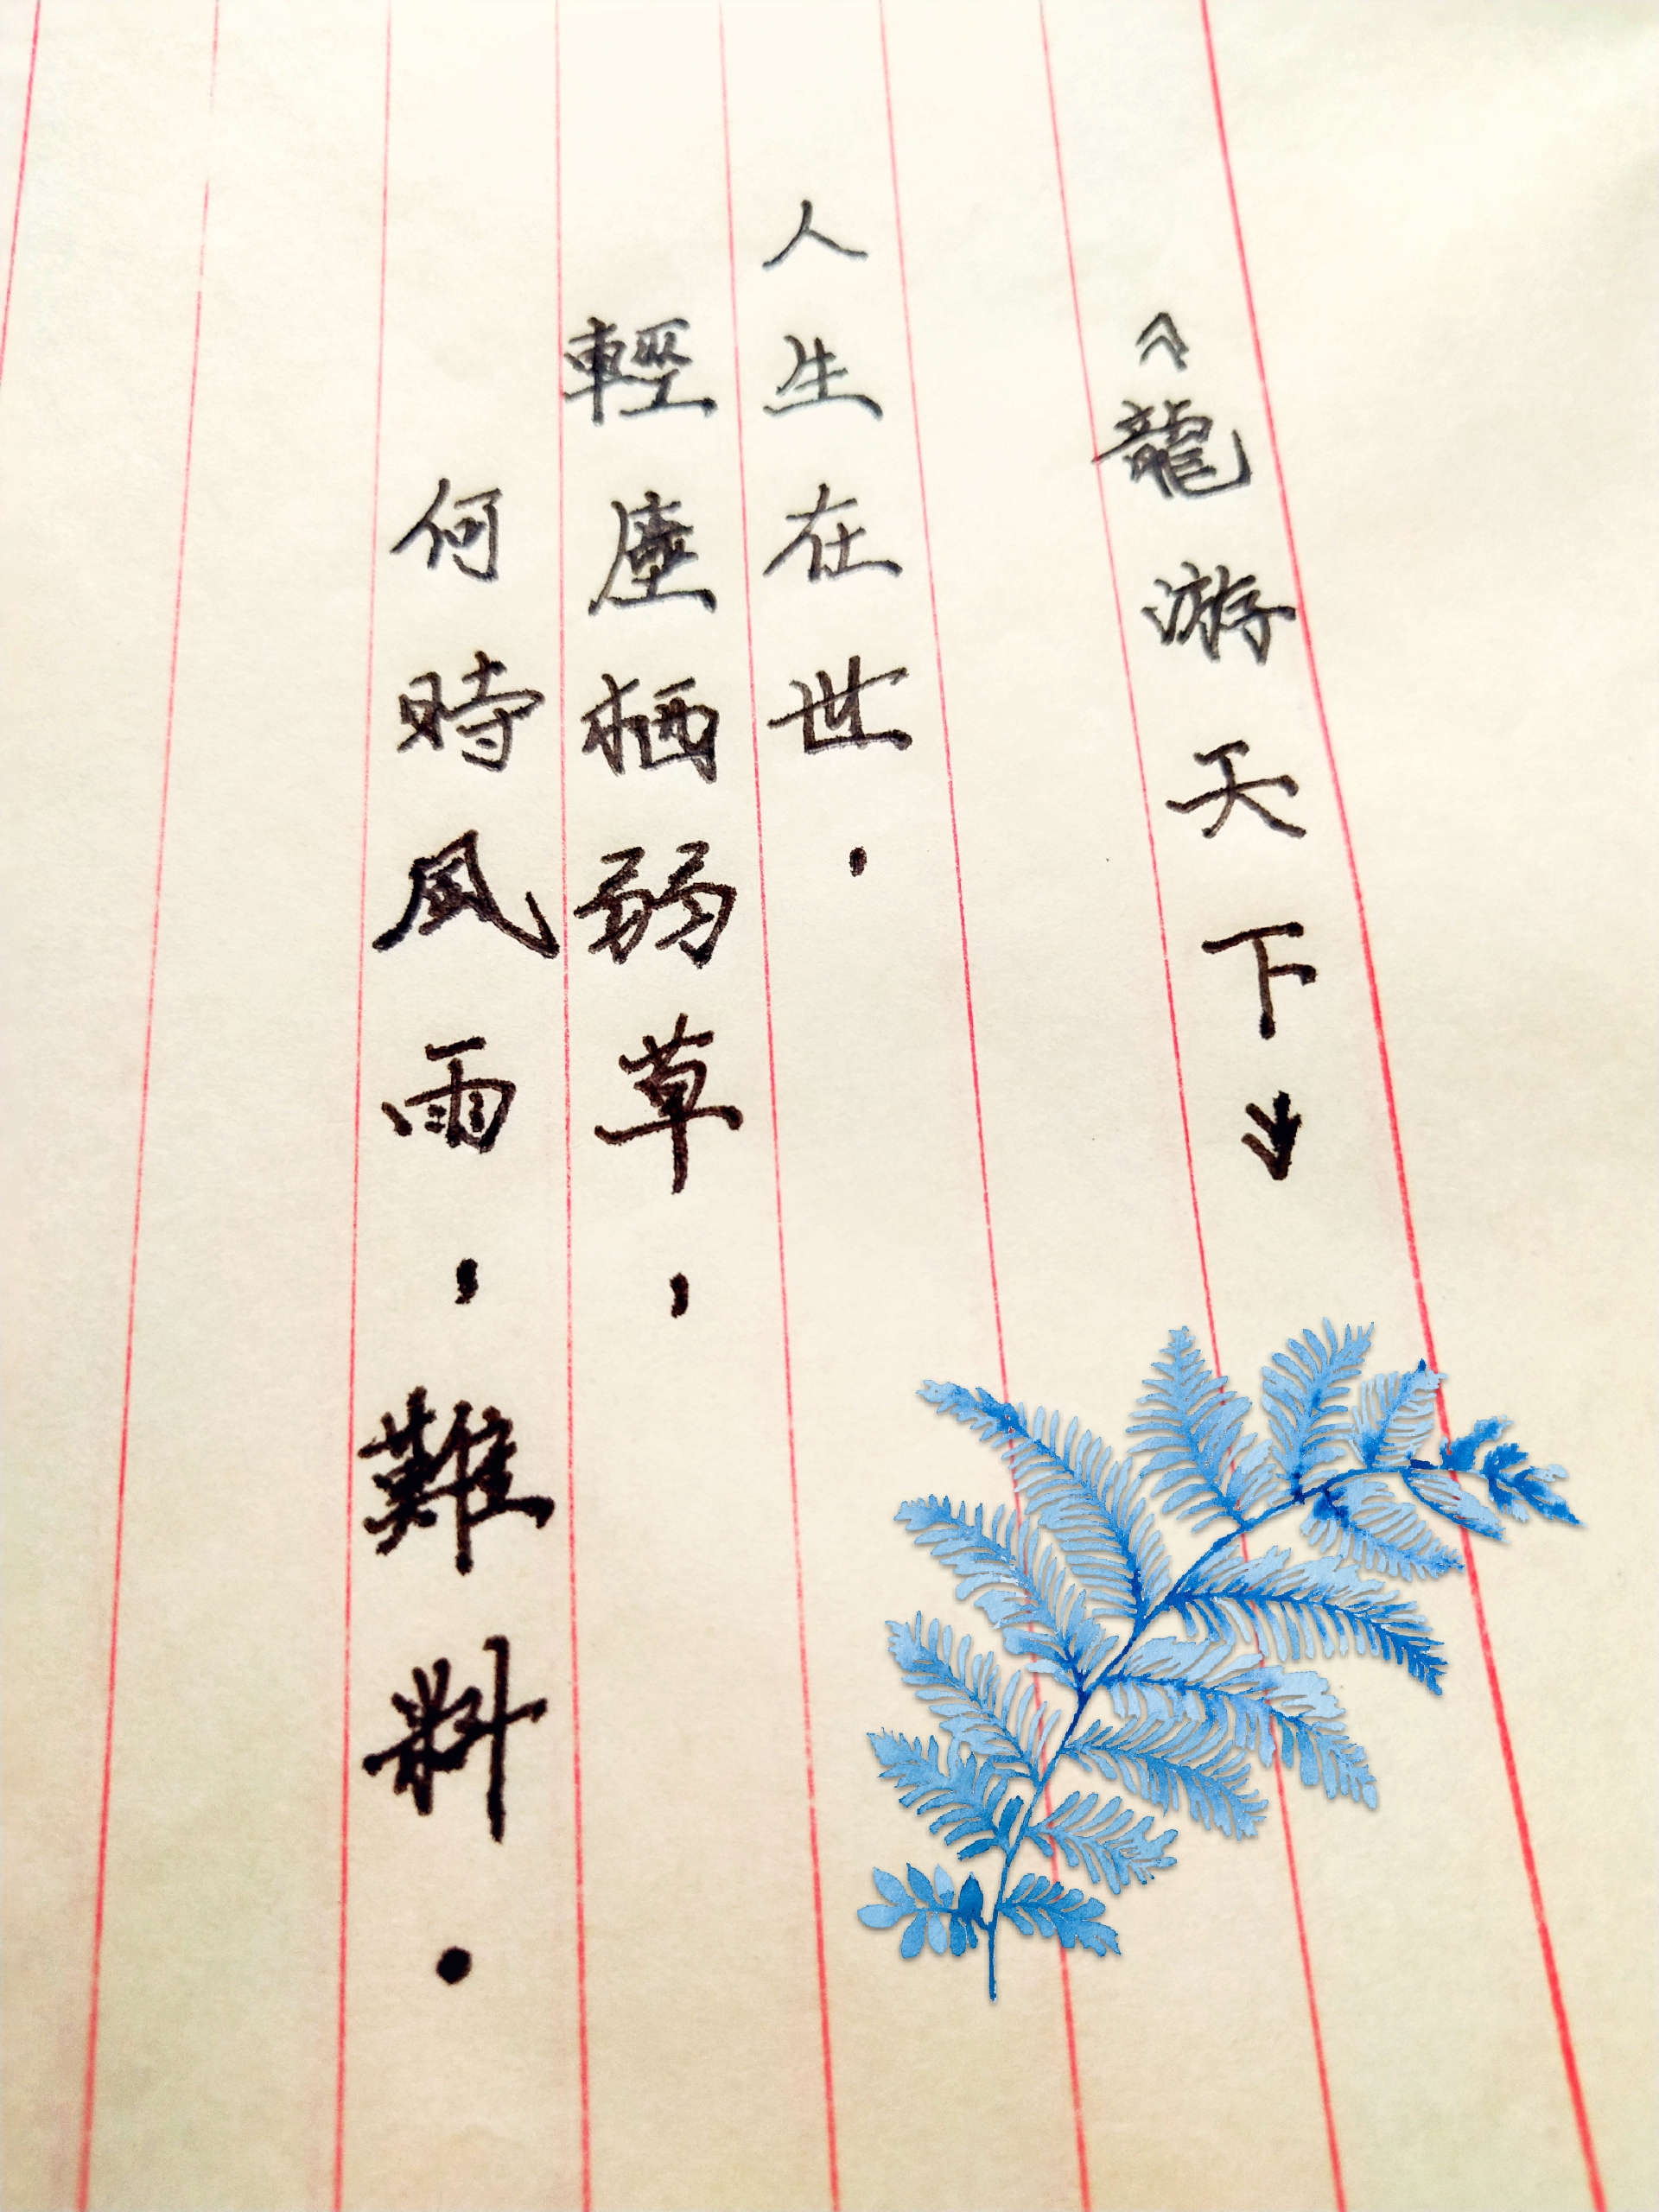 《龍游天下》
人生在世,
輕塵栖弱草,
何時風雨,難料.